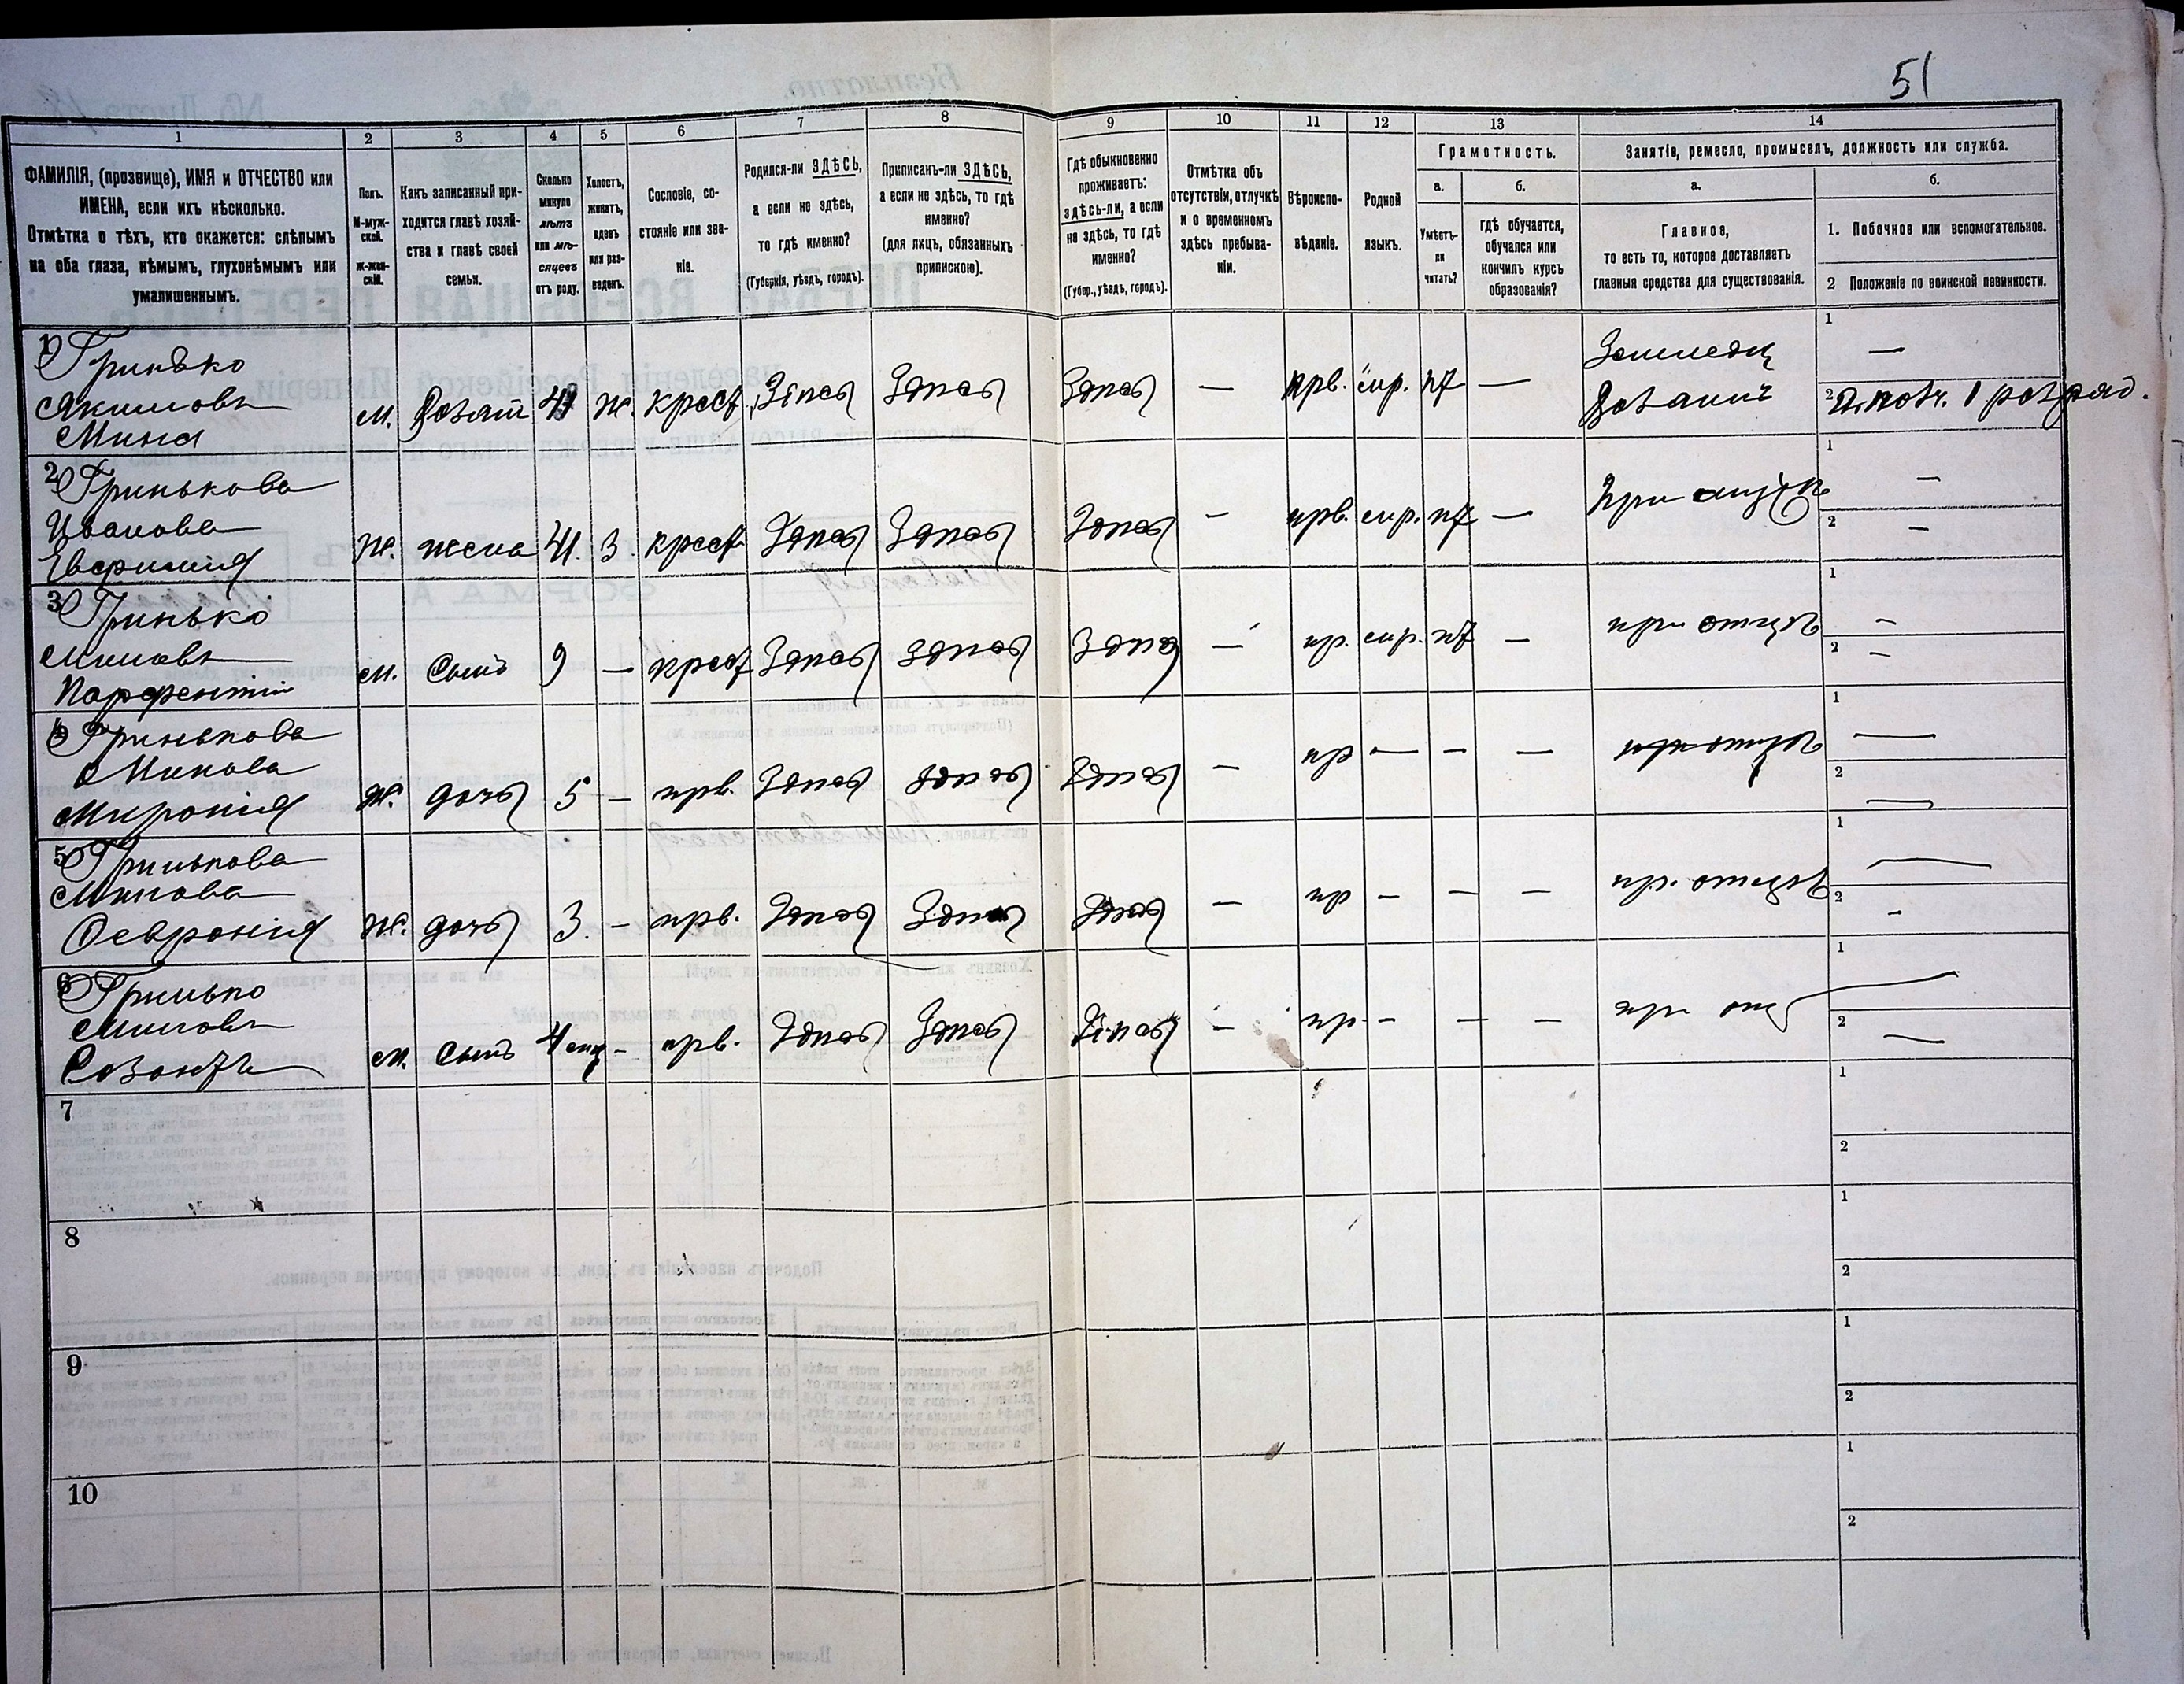 51
1 2 3 4 5 6 7 8 9 10 11 12 13 14
ФАМИЛІЯ, (прозвище), ИМЯ и ОТЧЕСТВО или
ИМЕНА, если ихъ нѣсколько.
Отмѣтка о тѣхъ, кто окажется: слѣпымъ
на оба глаза, нѣмымъ, глухонѣмымъ или
умалишеннымъ.
Полъ.
М-муж-
ской.
ж-жен-
скій.
Какъ записанный при-
ходится главѣ хозяй-
ства и главѣ своей
семьи.
Сколько
минуло
лѣтъ
или мѣ-
сяцевъ
отъ роду.
Холостъ,
женатъ,
вдовъ
или раз-
веденъ.
Сословіе, со-
стояніе или зва-
ніе.
Родился-ли ЗДѢСЬ,
а если не здѣсь,
то гдѣ именно?
(Губернія, уѣздъ, городъ).
Приписанъ-ли ЗДѢСЬ,
а если не здѣсь, то гдѣ
именно?
(для лицъ, обязанныхъ
припискою).
Гдѣ обыкновенно
проживаетъ:
здѣсь-ли, а если
не здѣсь, то гдѣ
именно?
(Губер., уѣздъ, городъ).
Отмѣтка объ
отсутствіи, отлучкѣ
и о временномъ
здѣсь пребыва-
ніи.
Вѣроиспо-
вѣданіе.
Родной
языкъ.
Грамотность.
а.
Умѣетъ-
ли
читать?
б.
Гдѣ обучается,
обучался или
кончилъ курсъ
образованія?
Занятіе, ремесло, промыселъ, должность или служба.
а.
Главное,
то есть то, которое доставляетъ
главныя средства для существованія.
б.
1. Побочное или вспомогательное.
2 Положеніе по воинской повинности.
1 Гринько
Акимовъ
Мина
м. Хозяин ж. крест. Здѣсь Здѣсь Здѣсь — прв. мр. нт —
Земледѣл
Хозяинъ
1 —
2 разряд.
2 Гринькова
Иванова
Евфимія
ж. жена 41. З. крест Здѣсь Здѣсь Здѣсь — прв. мр. нт — При мужѣ
1 —
2 —
3 Гринько
Миновъ
Парфентій
м. Сынъ 9 — крест Здѣсь Здѣсь Здѣсь — пр. мр. нт — при отцѣ
1 —
2 —
4 Гринькова
Минова
Миронія
ж. дочь 5 — прв. Здѣсь Здѣсь Здѣсь — пр — — — при отцѣ
1 —
2 —
5 Гринькова
Минова
Февронія
ж. дочь 3. — прв. Здѣсь Здѣсь Здѣсь — пр — — — пр. отцѣ
1 —
2 —
6 Гринько
Миновъ
Созонтъ
м. Сынъ 4 мц — прв. Здѣсь Здѣсь Здѣсь — пр — — — при отц
1 —
2 —
7
1
2
8
1
2
9
1
2
10
1
2